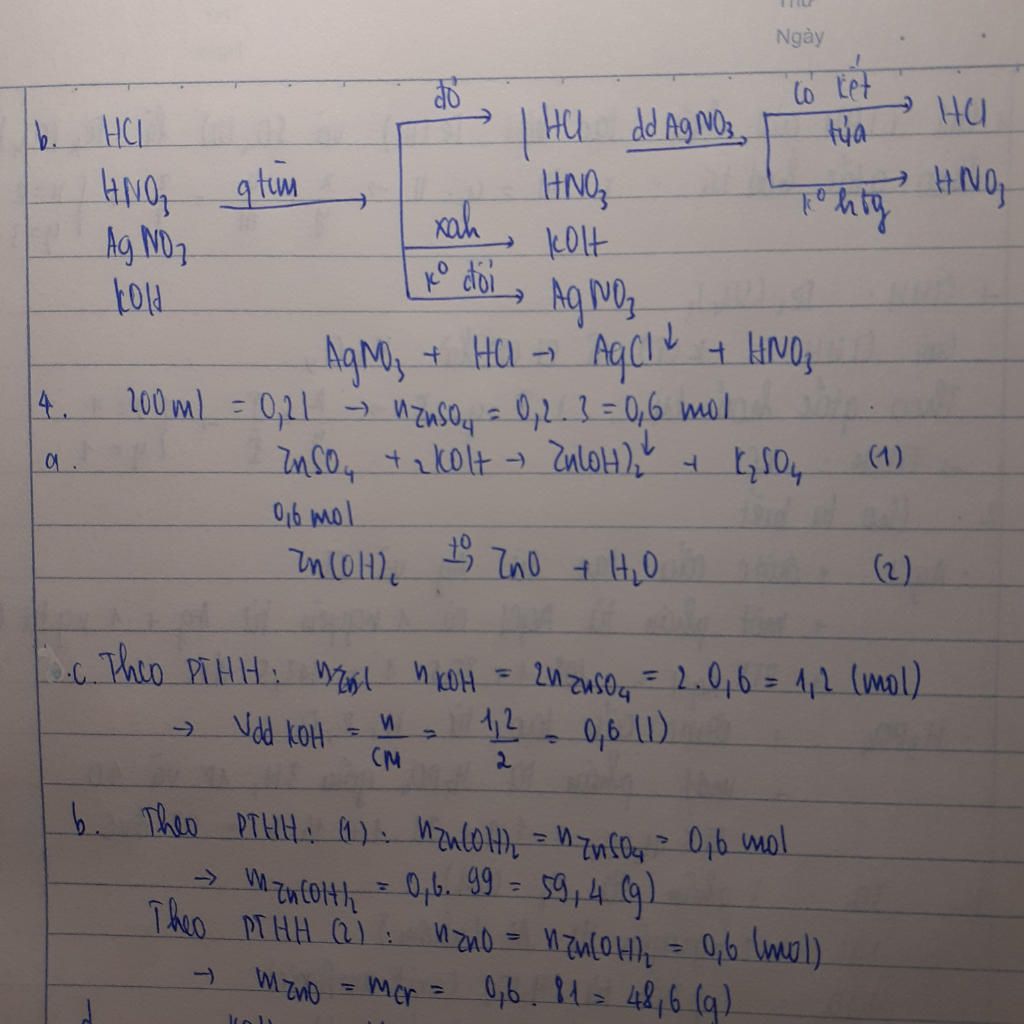 Thứ
Ngày
b. HCl đỏ HCl dd AgNO₃ có kết tủa HCl
HNO₃ q tím HNO₃ k⁰ htg HNO₃
AgNO₃ xah KOH
KOH k⁰ đổi AgNO₃
AgNO₃ + HCl → AgCl↓ + HNO₃
4. 200ml = 0,2l → nZnSO₄ = 0,2 . 3 = 0,6 mol
a. ZnSO₄ + 2KOH → Zn(OH)₂↓ + K₂SO₄ (1)
0,6 mol
Zn(OH)₂ t⁰→ ZnO + H₂O (2)
c. Theo PTHH: nKOH = 2nZnSO₄ = 2 . 0,6 = 1,2 (mol)
→ Vdd KOH = n/CM = 1,2/2 = 0,6 (l)
b. Theo PTHH: (1): nZn(OH)₂ = nZnSO₄ = 0,6 mol
→ mZn(OH)₂ = 0,6 . 99 = 59,4 (g)
Theo PTHH (2): nZnO = nZn(OH)₂ = 0,6 (mol)
→ mZnO = mcr = 0,6 . 81 = 48,6 (g)
d